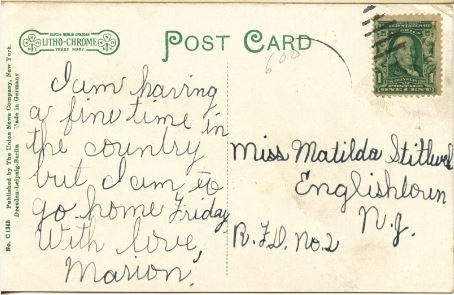 LITHO-CHROME
TRADE MARK
POST CARD
600
1
ONE CENT
No. C1348 Published by The Union News Company, New York.
Dresden-Leipzig-Berlin Made in Germany
I am having
a fine time in
the country
but I am to
go home Friday
With love
Marion.
Miss Matilda Stillwel
Englishtown
N.J.
R.F.D. No. 2